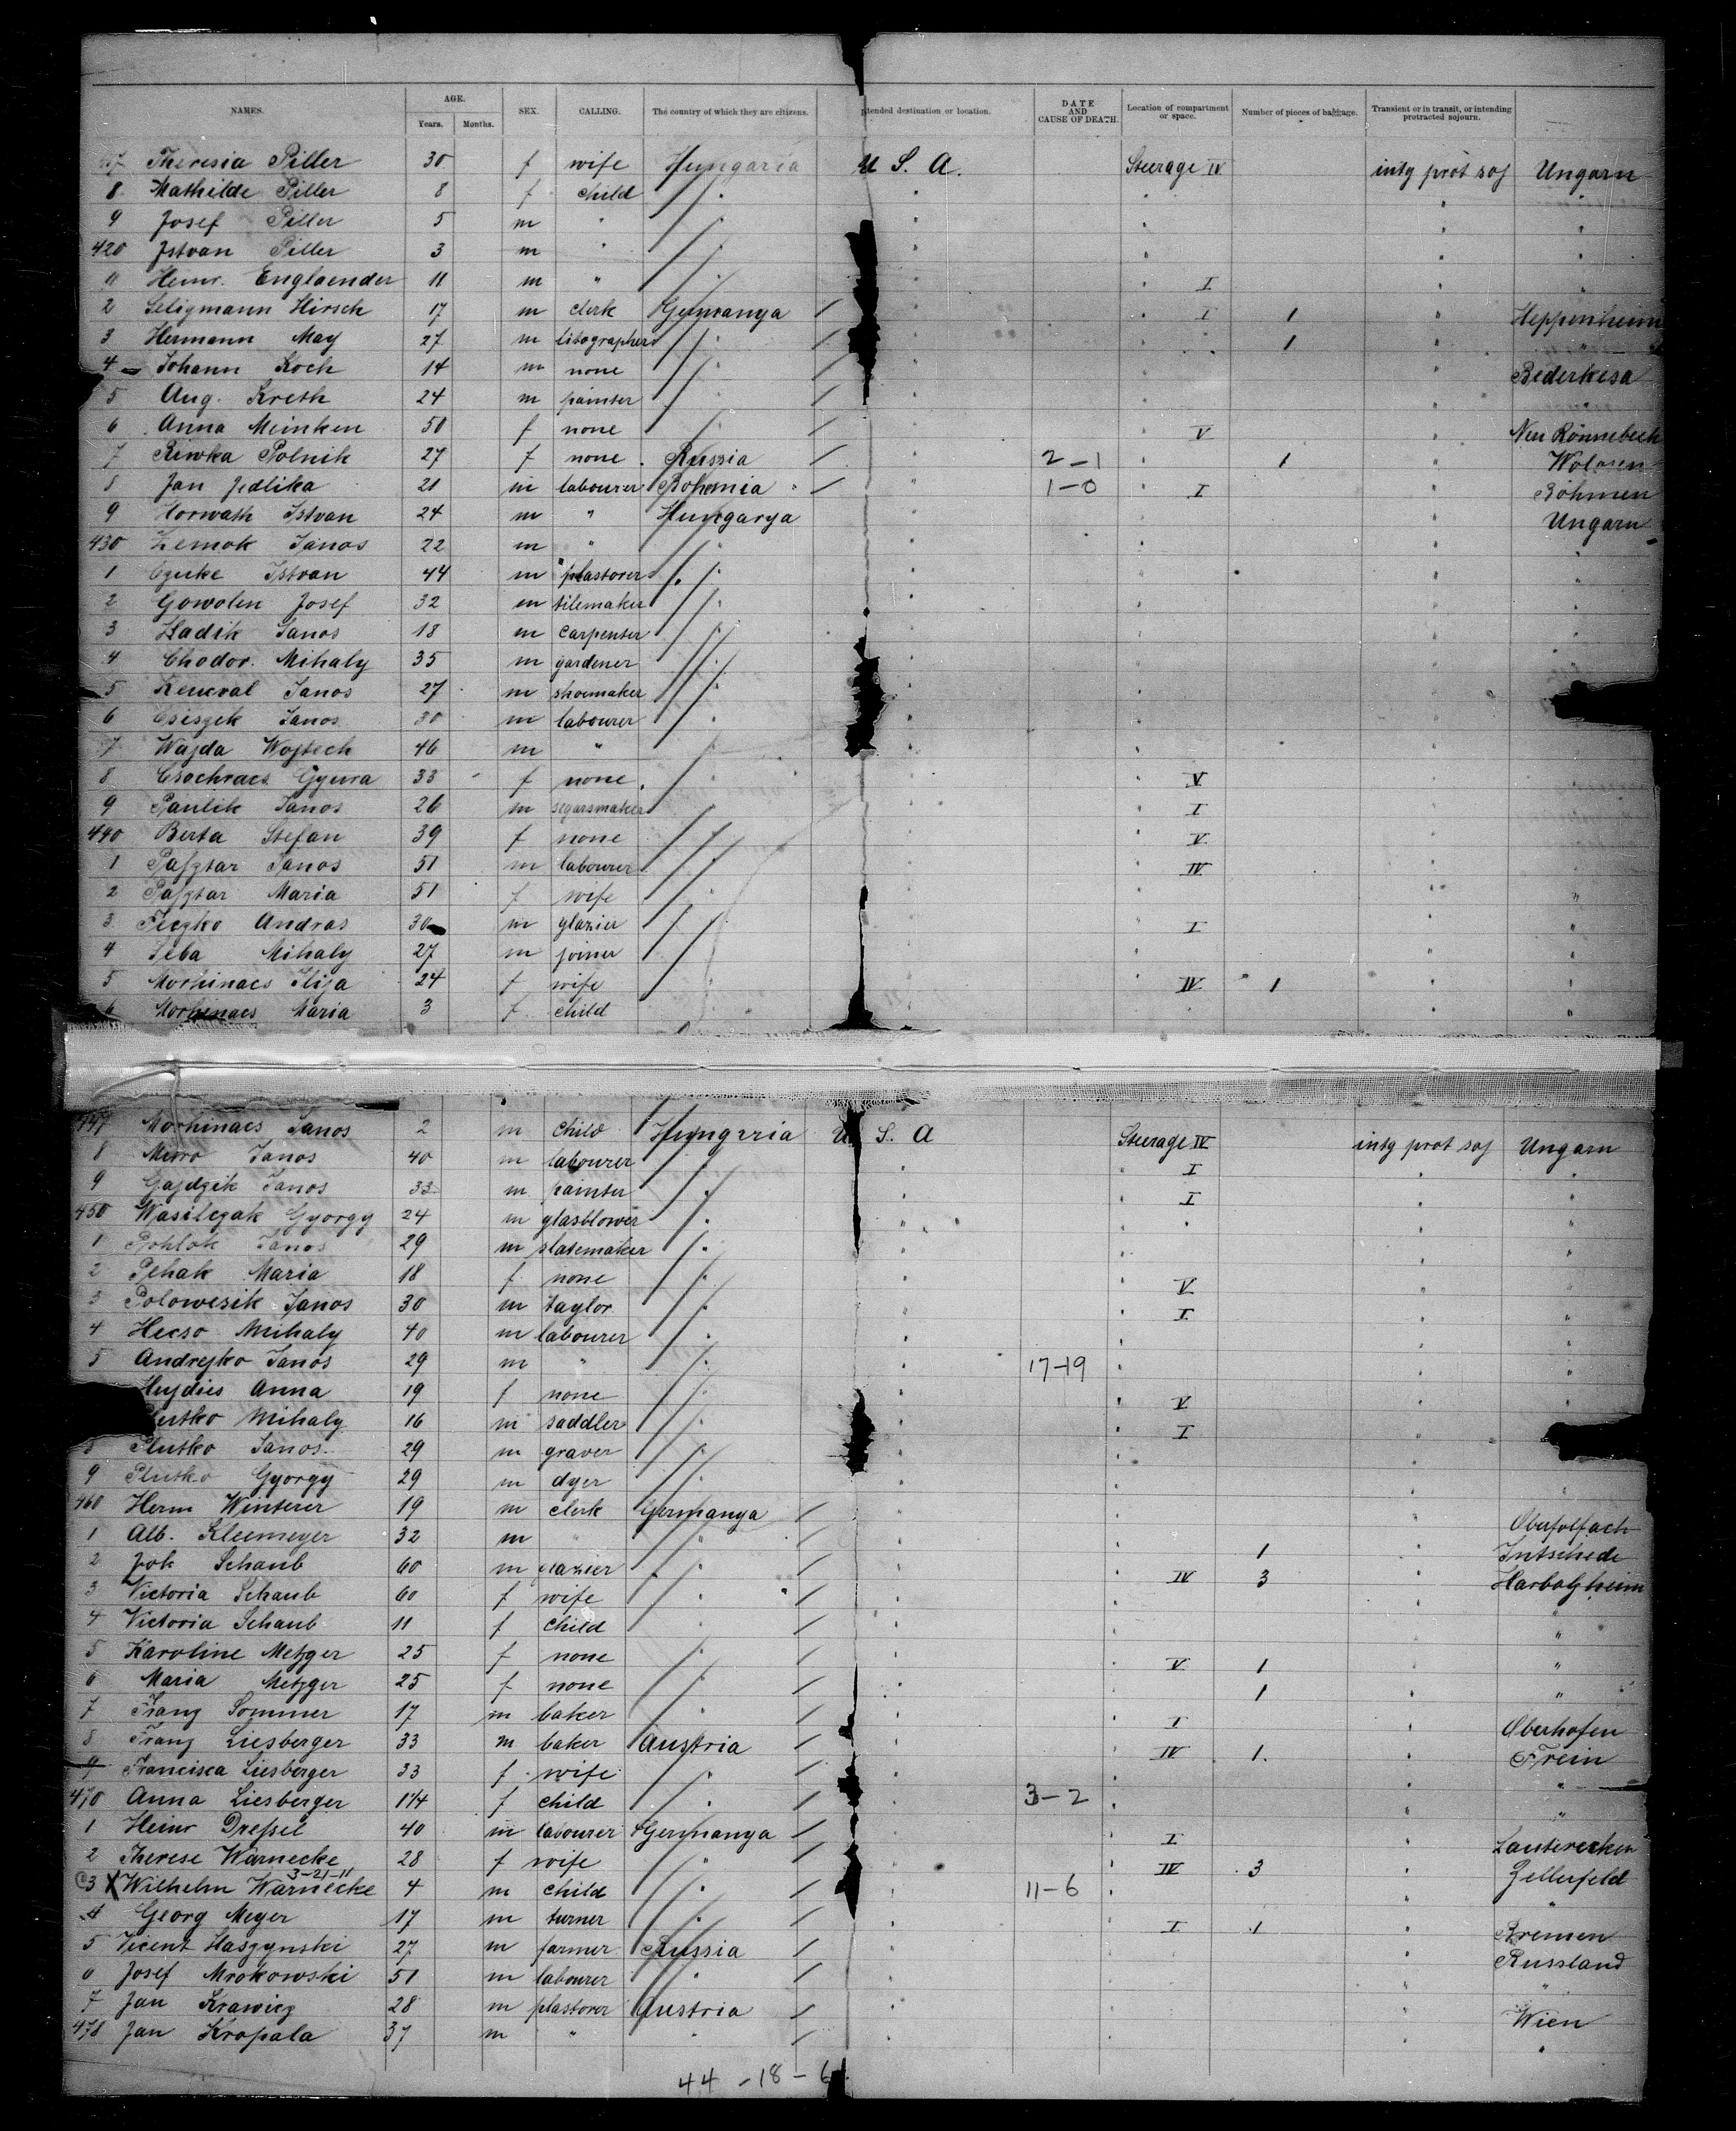 NAMES. AGE. Years. Months. SEX. CALLING. The country of which they are citizens. ntended destination or location. DATE AND CAUSE OF DEATH. Location of compartment or space. Number of pieces of baggage. Transient or in transit, or intending protracted sojourn.
Theresia Piller 30 f wife Hungaria U S. A. Steerage IV intg prot soj Ungarn
8 Mathilde Piller 8 f child " " " " "
9 Josef Piller 5 m " " " " " "
420 Istvan Piller 3 m " " " " " "
Heinr. Englaender 11 m " " " " I " "
2 Seligmann Hirsch 17 m clerk Germanya / " " I 1 " Heppenheim
3 Hermann May 27 m litographer " / " " 1 " "
4 Johann Koch 14 m none " / " " " Bederkesa
5 Aug. Kreth 24 m painter " / " " " "
6 Anna Meinken 50 f none " / " " V " Neu Rönnebeck
7 Riwka Polnik 27 f none Russia / " 2-1 " 1 "
8 Jan Jedlika 21 m labourer Bohemia / " 1-0 " I " Böhmen
9 Horwath Istvan 24 m " Hungarya " " " Ungarn
430 Zemok Janos 22 m " " " " " "
1 Istvan 44 m plastorer " " " " "
2 Gowolen Josef 32 m tilemaker " " " " "
3 Hadik Janos 18 m carpenter " " " " "
4 Chodor. Mihaly 35 m gardener " " " " "
5 Janos 27 m shoemaker " " " "
6 Janos 30 m labourer " " " "
7 Wajda Wojtech 46 m " " " " " "
8 Gyura 33 f none " " " V " "
9 Paulik Janos 26 m segarsmaker " " " I " "
440 Berta Stefan 39 f none " " " V " "
1 Pasztar Janos 51 m labourer " " " IV " "
2 Pasztar Maria 51 f wife " " " " "
3 Andras 30 m glazier " " " I " "
4 Seba Mihaly 27 m joiner " " " " "
5 Morhinacs Ilija 24 f wife " " IV 1 " "
6 Morhinacs Maria 3 f child " " " " "
447 Morhinacs Janos 2 m child Hungaria U S. A Steerage IV intg prot soj Ungarn
8 Miro Janos 40 m labourer " " " I " "
9 Gajdzik Janos 33 m painter " " " I " "
450 Wasilczak Gyorgy 24 m glasblower " " " " " "
1 Pohlok Janos 29 m slatemaker " " " " "
2 Maria 18 f none " " " V " "
3 Polowesik Janos 30 m taylor " " " I " "
4 Hecso Mihaly 40 m labourer " " " " "
5 Andrejko Janos 29 m " " " 17-19 " " "
Anna 19 f none " " " V " "
Mihaly 16 m saddler " " " I "
8 Plutko Janos. 29 m graver " " " "
9 Plutko Gyorgy 29 m dyer " " " " "
460 Herm Winterer 19 m clerk Germanya / " " "
1 Alb. Kleemeyer 32 m " " / " " 1 " Intschede
2 Joh Schaub 60 m glazier " / " " IV 3 " Harbolzheim
3 Victoria Schaub 60 f wife " / " " " "
4 Victoria Schaub 11 f child " / " " " "
5 Karoline Metzger 25 f none " / " " V 1 " "
6 Maria Metzger 25 f none " / " " 1 " "
7 Franz Sommer 17 m baker " / " " I " Oberhofen
8 Franz Liesberger 33 m baker Austria / " " IV 1. " Frein
9 Francisca Liesberger 33 f wife " / " " " "
470 Anna Liesberger 1¼ f child " / " 3-2 " " "
1 Heinr Drefsel 40 m labourer Germanya / " " I " Lauterecken
2 Therese Warnecke 28 f wife " / " " IV 3 " Zellerfeld
3-21-11
3 X Wilhelm Warnecke 4 m child " / " 11-6 " " "
4 Georg Meyer 17 m turner " / " " I 1 " Bremen
5 Vicent Haszynski 27 m farmer Russia / " " " Russland
6 Josef Mrokowski 51 m labourer " / " " " "
7 Jan Krawicz 28 m plastorer Austria / " " " Wien
478 Jan Kropala 37 m " " / " " " "
44 - 18 - 6